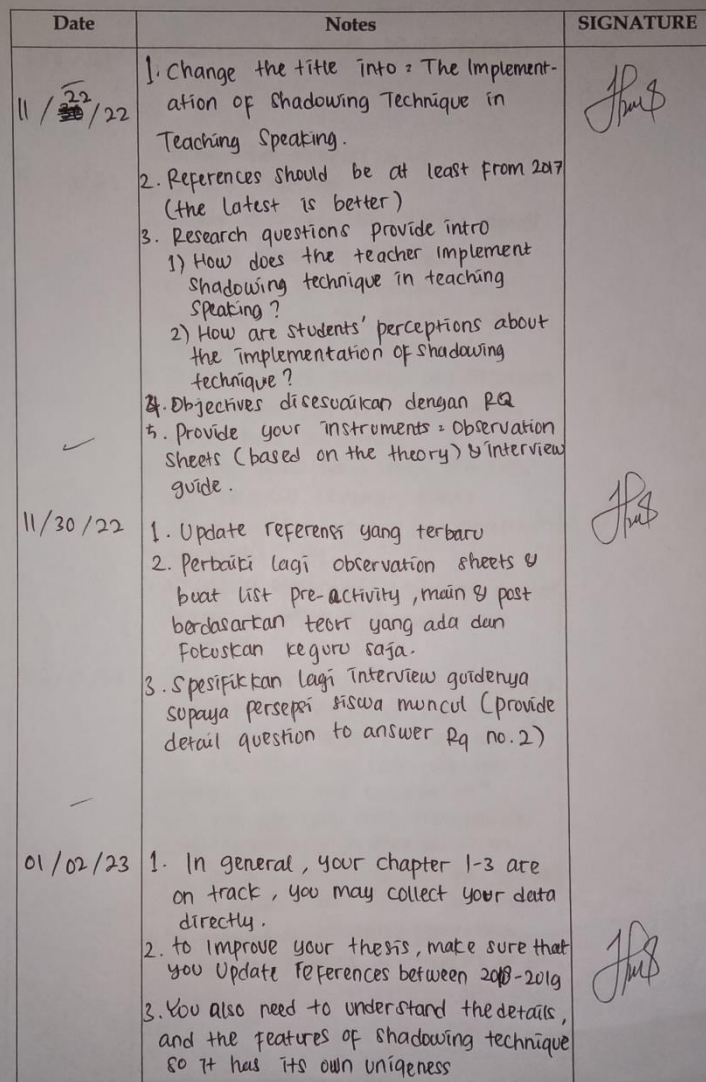 Date Notes SIGNATURE
1. Change the title into : The Implement-
11 / 22 / 22 ation of Shadowing Technique in
Teaching Speaking.
2. References should be at least from 2017
(the latest is better)
3. Research questions provide intro
1) How does the teacher implement
shadowing technique in teaching
speaking ?
2) How are students' perceptions about
the implementation of shadowing
technique ?
4. Objectives disesuaikan dengan RQ
5. Provide your instruments : Observation
sheets (based on the theory) & interview
guide.
11/30/22 1. Update referensi yang terbaru
2. Perbaiki lagi observation sheets &
buat list pre-activity, main & post
berdasarkan teori yang ada dan
Fokuskan ke guru saja.
3. Spesifikkan lagi interview guidenya
supaya persepsi siswa muncul (provide
detail question to answer Rq no. 2)
01/02/23 1. In general, your chapter 1-3 are
on track, you may collect your data
directly.
2. to Improve your thesis, make sure that
you Update references between 2018-2019
3. You also need to understand the details,
and the features of shadowing technique
so it has its own uniqeness